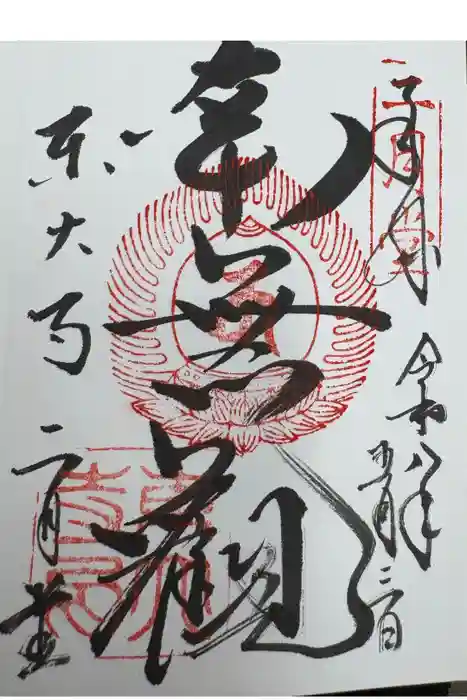 二月堂
令和八年
五月三日
南無観
東大寺
二月堂